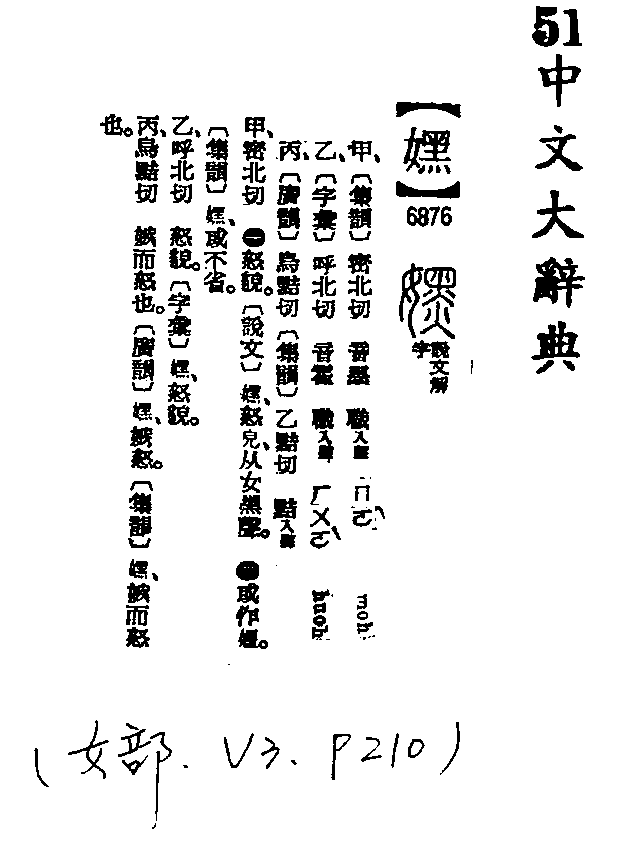 51
中文大辭典
【嫼】
6876
說文解字
甲、〔集韻〕密北切 音墨 職入聲 ㄇㄛˋ moh
乙、〔字彙〕呼北切 音霍 職入聲 ㄏㄨㄛˋ huoh
丙、〔廣韻〕烏黠切〔集韻〕乙黠切 黠入聲
甲、密北切 ㊀怒貌。〔說文〕嫼、怒皃、从女黑聲。㊁或作嬺。
〔集韻〕嫼、或不省。
乙、呼北切 怒貌。〔字彙〕嫼、怒貌。
丙、烏黠切 嫉而怒也。〔廣韻〕嫼、嫉怒。〔集韻〕嫼、嫉而怒
也。
(女部. V3. P210)